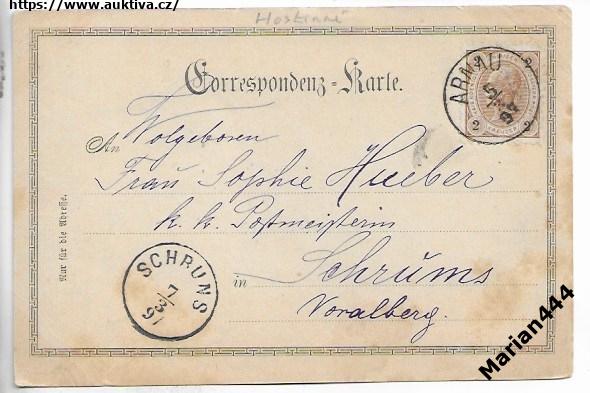 https://www.auktiva.cz/
Hostinné
Correspondenz-Karte.
ARNAU
5/3
94
2 2
2 2
An
Wolgeboren
Frau Sophie Hueber
k. k. Postmeisterin
in Schrums
Voralberg.
Nur für die Adresse.
SCHRUNS
7/3
97
Marian444